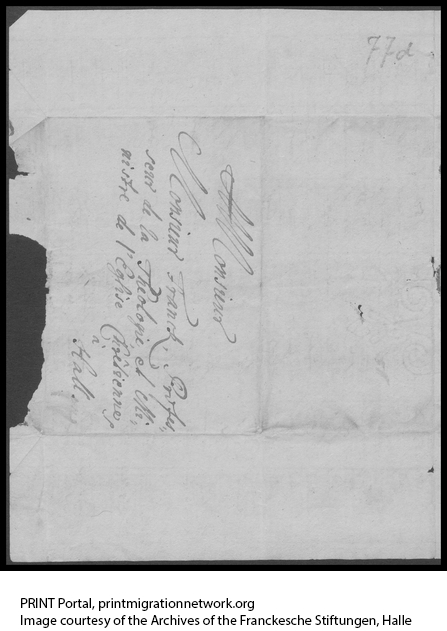 77d
A Monsieur
Monsieur Franck, Profes,
seur de la Theologie et Mi,
nistre de l'Eglise Chrêtienne,
à
Hall
PRINT Portal, printmigrationnetwork.org
Image courtesy of the Archives of the Franckesche Stiftungen, Halle